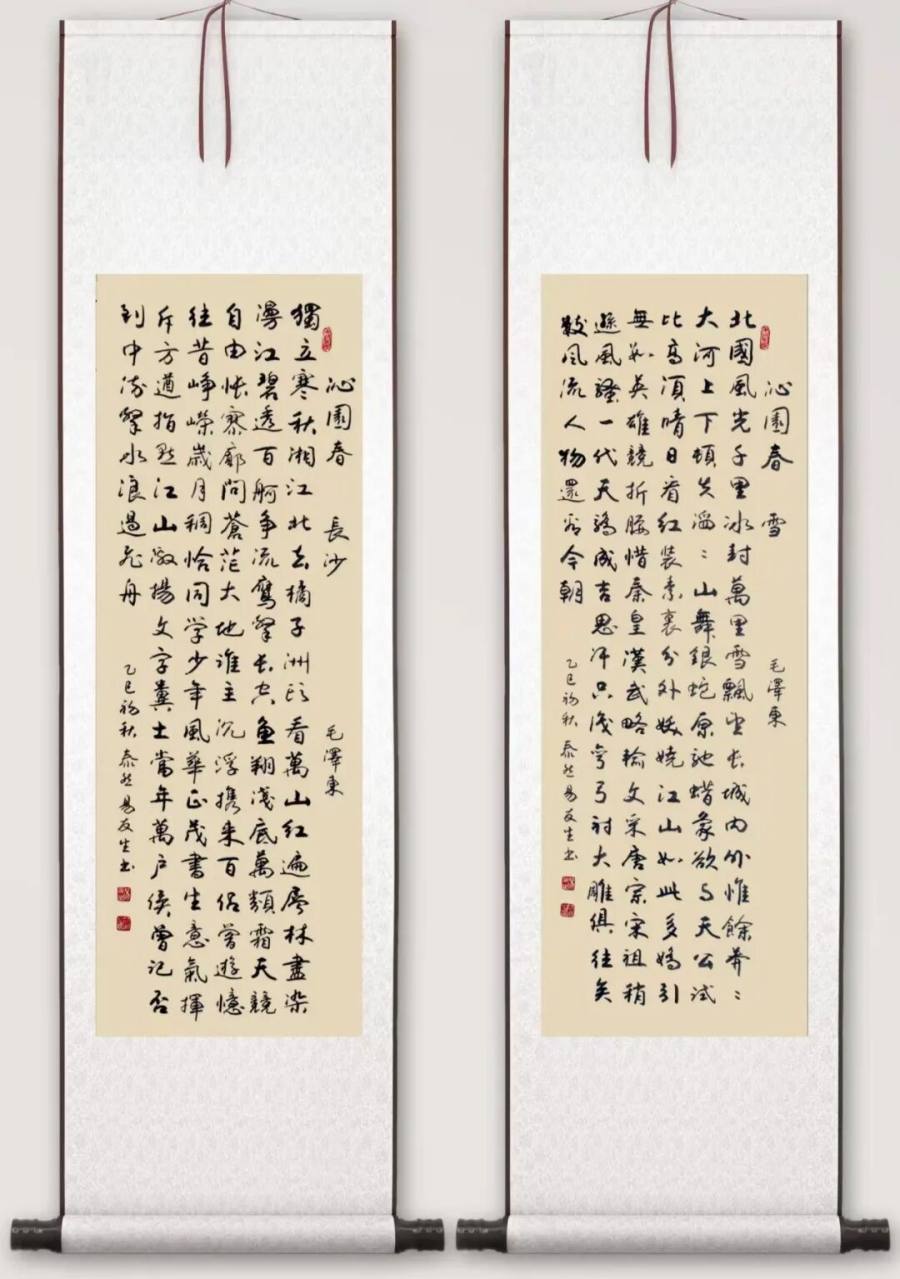 沁園春 雪 毛澤東
北國風光千里冰封萬里雪飄望长城内外惟餘莽〻
大河上下頓失滔〻山舞銀蛇原馳蜡象欲与天公試
比高須晴日看紅裝素裹分外妖嬈江山如此多嬌引
無数英雄競折腰惜秦皇漢武略輸文采唐宗宋祖稍
遜風騷一代天驕成吉思汗只识彎弓射大雕俱往矣
數风流人物還看今朝
乙巳初秋 泰然易友生书
沁園春 長沙 毛澤東
獨立寒秋湘江北去橘子洲头看萬山红遍層林盡染
漫江碧透百舸争流鷹擊长空魚翔淺底萬類霜天競
自由悵寥廓問蒼茫大地誰主沉浮携来百侣曾遊憶
往昔崢嶸歲月稠恰同学少年風華正茂書生意氣揮
斥方遒指點江山激揚文字糞土當年萬户侯曾记否
到中流擊水浪遏飞舟
乙巳初秋 泰然易友生书